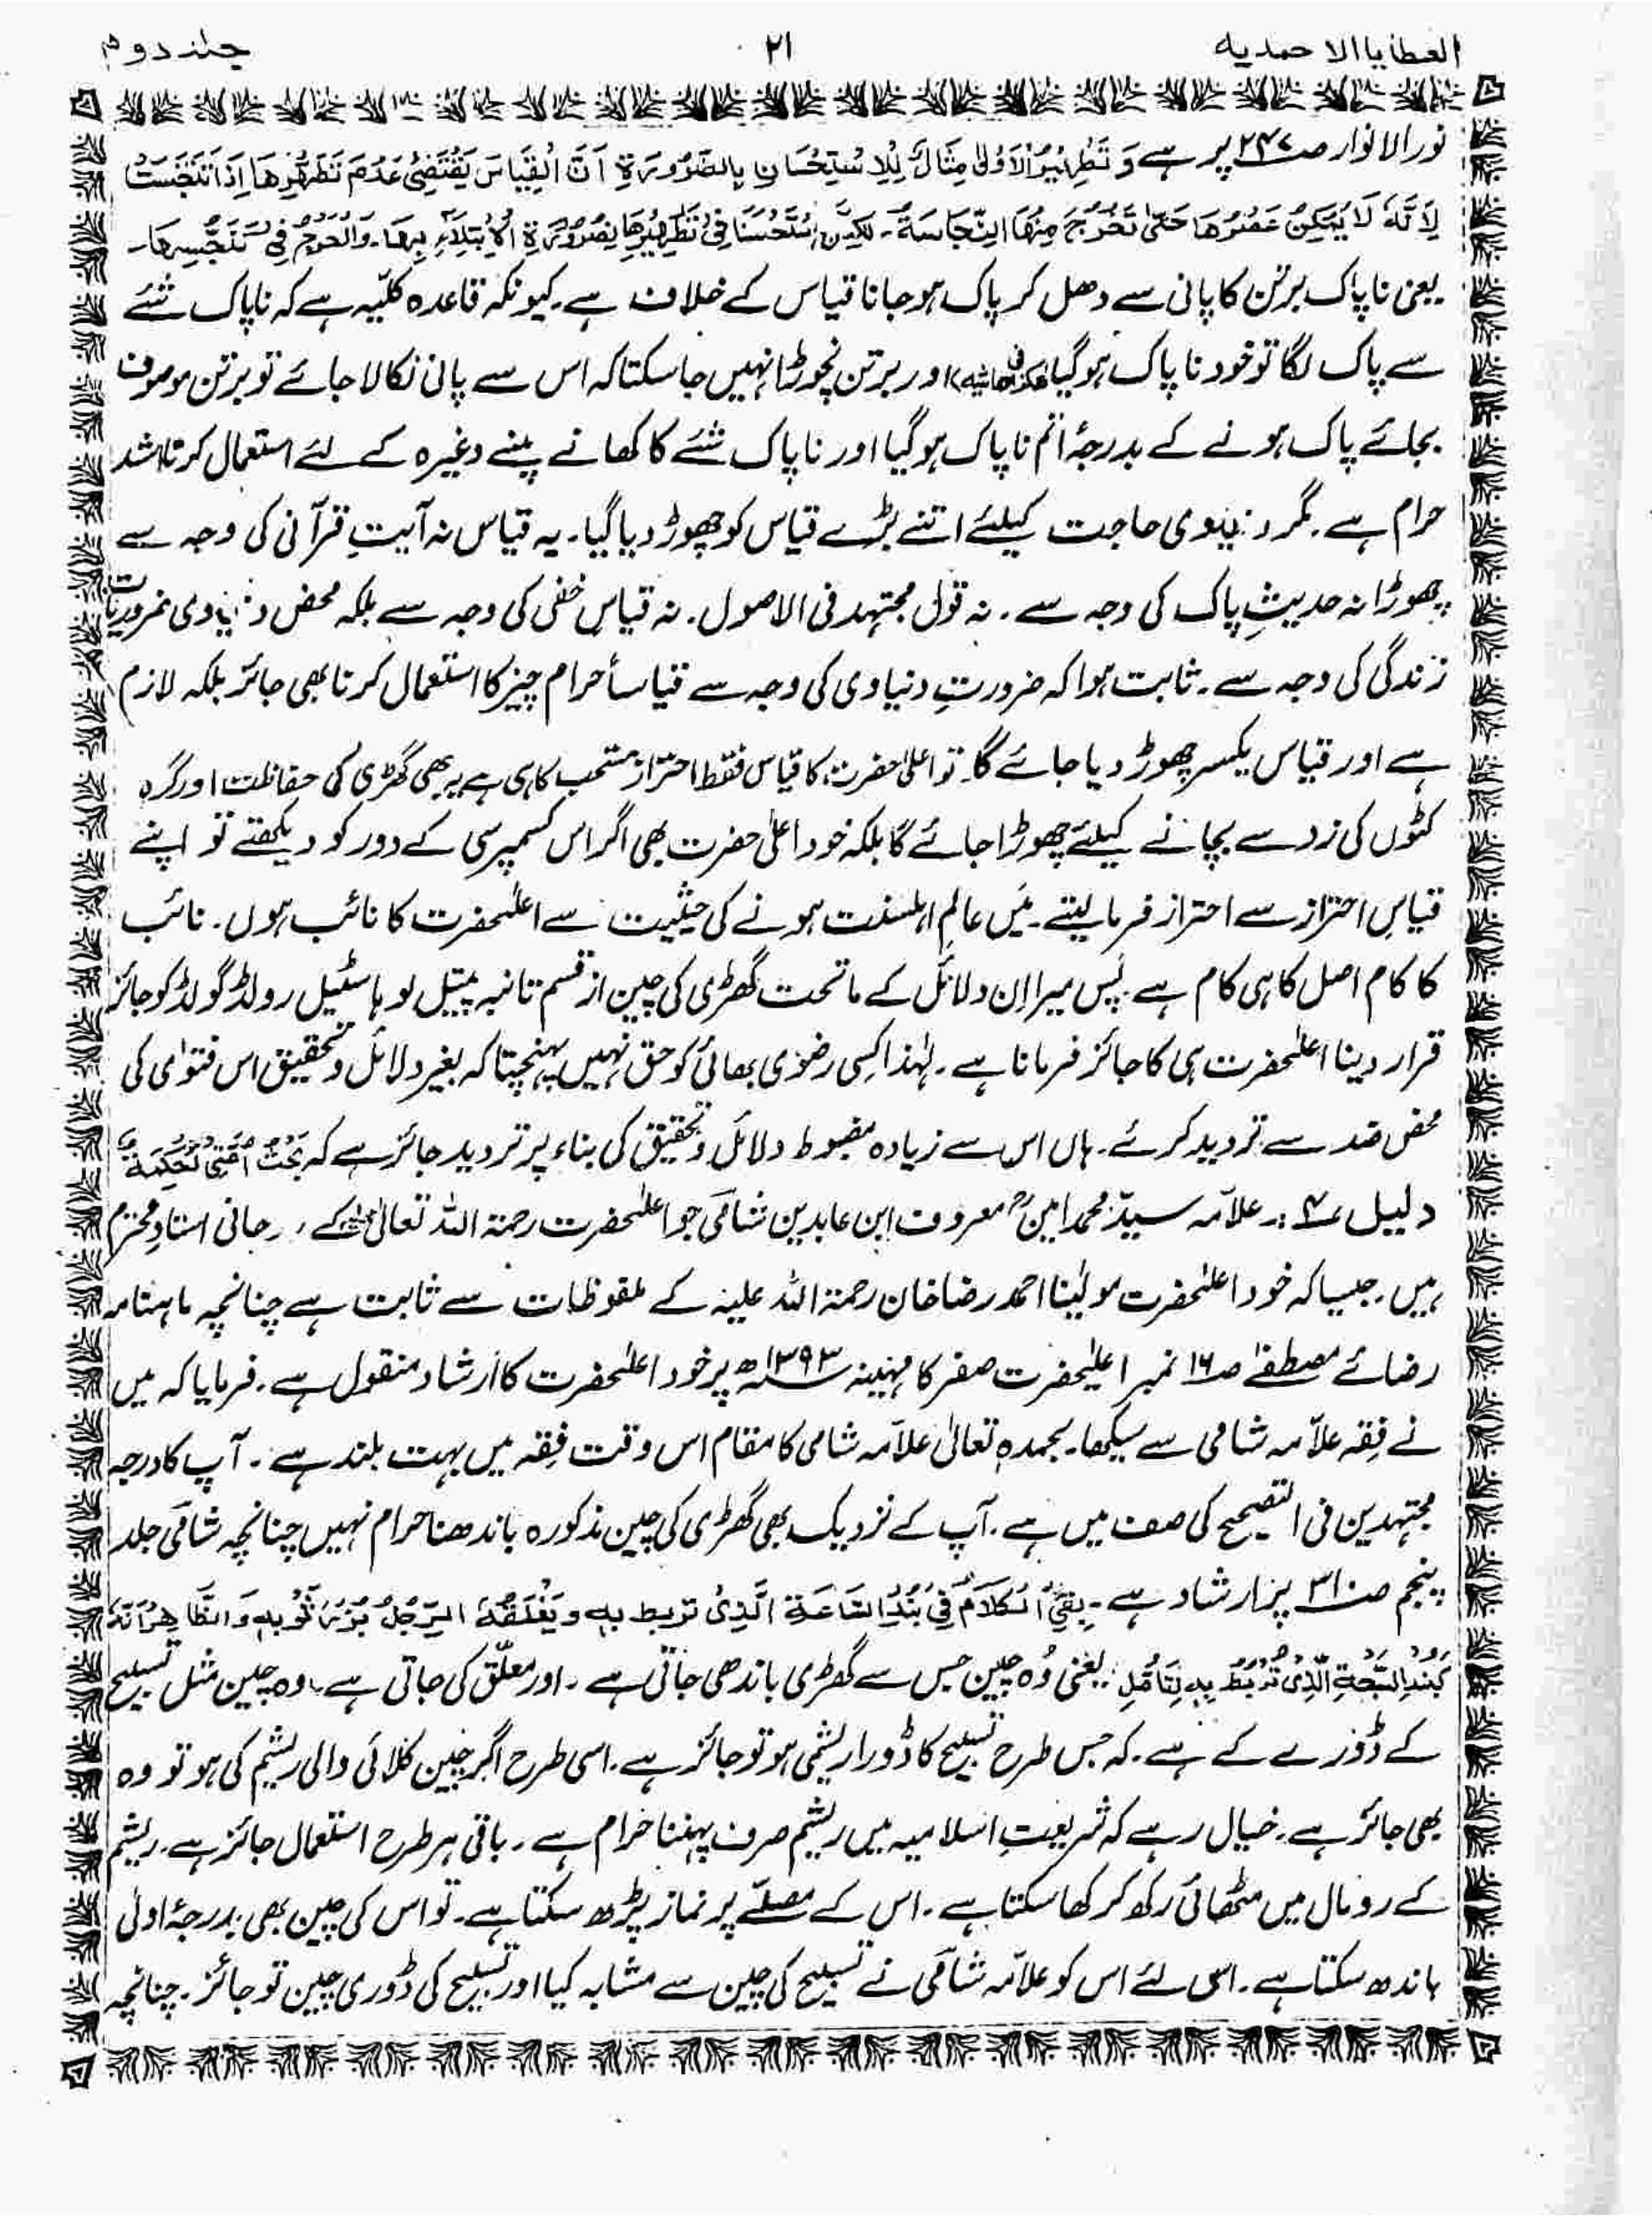 العطایا الاحمدیہ ۲۱ جلد دوم
نورالانوار صـ۲۴۷ پر ہے وَ تَطْهِيْرُ الْاَوَانِىْ مِثَالٌ لِلْاِسْتِحْسَانِ بِالضَّرُوْرَةِ اَنَّ الْقِيَاسَ يَقْتَضِىْ عَدَمَ تَطَهُّرِهَا اِذَا تَنَجَّسَتْ
لِاَنَّهٗ لَا يُمْكِنُ عَصْرُهَا حَتّٰى تَخْرُجَ مِنْهَا النَّجَاسَةُ۔ لٰكِنِ اسْتَحْسَنَّا فِىْ تَطْهِيْرِهَا لِضَرُوْرَةِ الْاِبْتِلَاءِ بِهَا۔ وَالْحَرَجُ فِىْ تَنَجُّسِهَا۔
یعنی ناپاک برتن کا پانی سے دھل کر پاک ہو جانا قیاس کے خلاف ہے۔ کیونکہ قاعدہ کلّیہ ہے کہ ناپاک شئے
سے پاک لگا تو خود ناپاک ہوگیا (ھکذا فی حاشیہ) اور برتن نچوڑا نہیں جاسکتا کہ اس سے پانی نکالا جائے تو برتن موصوف
بجائے پاک ہونے کے بدرجۂ اتم ناپاک ہو گیا اور ناپاک شئے کا کھانے پینے وغیرہ کے لئے استعمال کرنا اشد
حرام ہے۔ مگر دنیوی حاجت کیلئے اتنے بڑے قیاس کو چھوڑ دیا گیا۔ یہ قیاس نہ آیتِ قرآنی کی وجہ سے
چھوڑا نہ حدیثِ پاک کی وجہ سے۔ نہ قول مجتہد فی الاصول۔ نہ قیاسِ خفی کی وجہ سے بلکہ محض دنیاوی ضروریات
زندگی کی وجہ سے۔ ثابت ہوا کہ ضرورتِ دنیاوی کی وجہ سے قیاساً حرام چیز کا استعمال کرنا بھی جائز بلکہ لازم
ہے اور قیاس یکسر چھوڑ دیا جائے گا۔ تو اعلیٰ حضرت کا قیاس فقط احتراز مستحب کا ہی ہے یہ بھی گھڑی کی حفاظت اور گرہ
کٹوں کی زد سے بچانے کیلئے چھوڑا جائے گا بلکہ خود اعلیٰ حضرت بھی اگر اس کسمپرسی کے دور کو دیکھتے تو اپنے
قیاسِ احتراز سے احتراز فرما لیتے۔ میں عالمِ اہلسنت ہونے کی حیثیت سے اعلیٰحضرت کا نائب ہوں۔ نائب
کا کام اصل کا ہی کام ہے۔ پس میرا ان دلائل کے ماتحت گھڑی کی چین از قسم تانبہ پیتل لوہا سٹیل رولڈ گولڈ کو جائز
قرار دینا اعلیٰحضرت ہی کا جائز فرمانا ہے۔ لہٰذا کسی رضوی بھائی کو حق نہیں پہنچتا کہ بغیر دلائل و تحقیق اس فتوٰی کی
محض ضد سے تردید کرے۔ ہاں اس سے زیادہ مضبوط دلائل و تحقیق کی بناء پر تردید جائز ہے کہ
دلیل ۷ :۔ علاّمہ سیّد محمد امین معروف ابن عابدین شامی جو اعلیٰحضرت رحمۃ اللہ تعالیٰ کے روحانی استادِ محترم
ہیں۔ جیسا کہ خود اعلیٰحضرت مولٰینا احمد رضا خان رحمۃ اللہ علیہ کے ملفوظات سے ثابت ہے چنانچہ ماہنامہ
رضائے مصطفےٰ صـ۱۶ نمبر اعلیٰحضرت صفر کا مہینہ ۱۳۹۳ھ پر خود اعلیٰحضرت کا ارشاد منقول ہے۔ فرمایا کہ میں
نے فِقہ علاّمہ شامی سے سیکھا۔ بحمدہٖ تعالیٰ علاّمہ شامی کا مقام اس وقت فِقہ میں بہت بلند ہے۔ آپ کا درجہ
مجتہدین فی التصحیح کی صف میں ہے۔ آپ کے نزدیک بھی گھڑی کی چین مذکورہ باندھنا حرام نہیں چنانچہ شامی جلد
پنجم صـ۳۱۰ پر ارشاد ہے۔ بَقِىَ الْكَلَامُ فِىْ بَنْدِ السَّاعَةِ الَّذِىْ تربط بہٖ و يَعْلَقُهٗ الرَّجُلُ بِزِرِّ ثَوْبِهٖ وَالظَّاهِرُ اَنَّهٗ
كَبَنْدِ السَّبْحَةِ الَّذِىْ تُرْبَطُ بِهٖ تَاَمَّلْ۔ یعنی وُہ چین جس سے گھڑی باندھی جاتی ہے۔ اور معلّق کی جاتی ہے۔ وہ چین مثل تسبیح
کے ڈورے کے ہے۔ کہ جس طرح تسبیح کا ڈورا ریشمی ہو تو جائز ہے۔ اسی طرح اگر چین کلائی والی ریشم کی ہو تو وہ
بھی جائز ہے۔ خیال رہے کہ شریعتِ اسلامیہ میں ریشم صرف پہننا حرام ہے۔ باقی ہر طرح استعمال جائز ہے۔ ریشم
کے رومال میں مٹھائی رکھ کر کھا سکتا ہے۔ اس کے مصلّے پر نماز پڑھ سکتا ہے۔ تو اس کی چین بھی بدرجۂ اولیٰ
باندھ سکتا ہے۔ اسی لئے اس کو علاّمہ شامی نے تسبیح کی چین سے مشابہ کیا اور تسبیح کی ڈوری چین تو جائز۔ چنانچہ